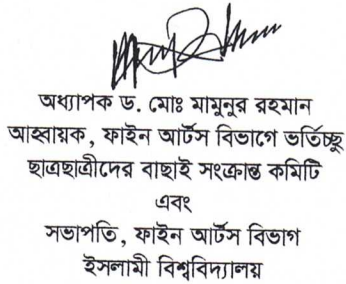 অধ্যাপক ড. মোঃ মামুনুর রহমান
আহবায়ক, ফাইন আর্টস বিভাগে ভর্তিচ্ছু
ছাত্রছাত্রীদের বাছাই সংক্রান্ত কমিটি
এবং
সভাপতি, ফাইন আর্টস বিভাগ
ইসলামী বিশ্ববিদ্যালয়